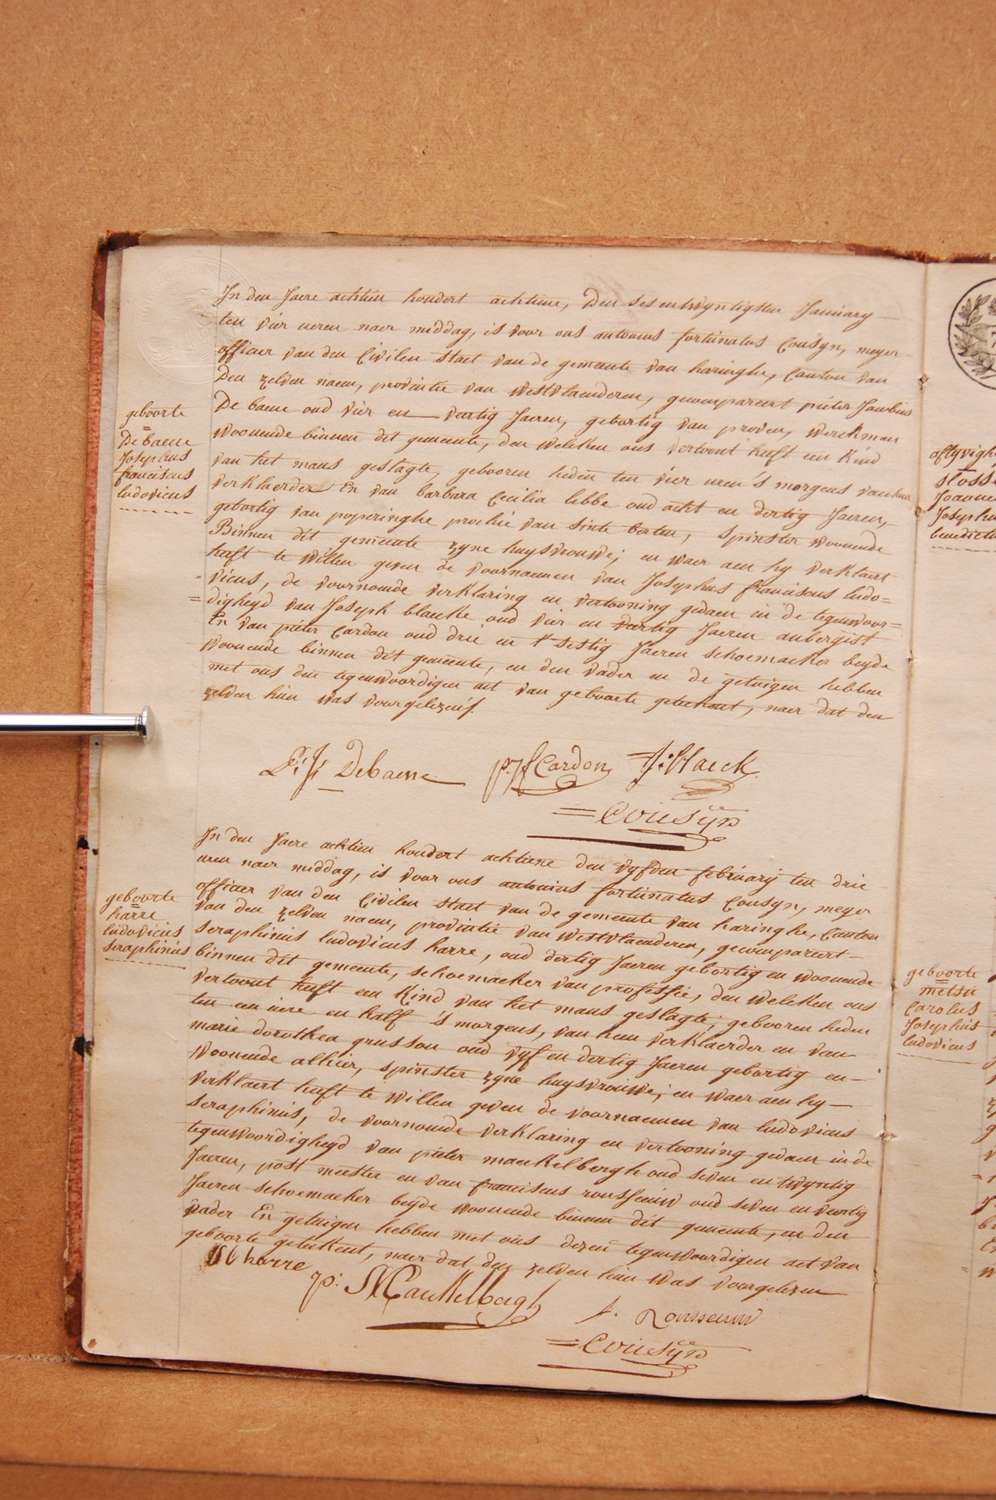 In den Jaere achtien hondert achtiene, Den sesentwyntigsten January
ten vier ueren naer middag, is voor ons antonius fortunatus Cousyn, meyer
officier van den Civilen staet van de gemeente van haringhe, Canton van
Den zelven naem, provintie van westvlaenderen, gecompareert pieter Jacobus
De baene oud vier en veertig Jaeren, gebortig van proven, werckman
woonende binnen dit gemeente, den welcken ons vertoont heeft een Kind
van het mans geslagte, gebooren heden ten vier uren s morgens van hem
verklaerder En van barbara Cecilia lebbe oud acht en dertig Jaeren,
gebortig van poperinghe prochie van sinte berten, spinster woonende
Binnen dit gemeente zyne huysvrouwe; en waer aen hy verklaert
heeft te willen geven de voornaemen van Josephus franciscus ludo=
vicus, de voornoemde verklaring en vertooning gedaen in de tegenwoor=
=digheyd van Joseph blaucke oud vier en veertig Jaeren aubergist
En van pieter Cardon oud drie en t'sestig Jaeren schoemacker beyde
woonende binnen dit gemeente, en den vader en de getuigen hebben
met ons den tegenwoordigen act van geboorte geteekent, naer dat den
zelven hun was voorgelezen.
geboorte
De baene
Josephus
franciscus
ludovicus
P: J: Debaene
p: J Cardon
J: Blaeck
= Cousyn
In den Jaere achtien hondert achtiene den vyfden february ten drie
uren naer middag, is voor ons antonius fortunatus Cousyn, meyer
officier van den Civilen staet van de gemeente van haringhe, Canton
van den zelven naem, provintie van westvlaenderen, gecompareert
seraphinus ludovicus harre, oud dertig Jaeren gebortig en woonende
binnen dit gemeente, schoemacker van professie, den welcken ons
vertoont heeft een Kind van het mans geslagte; gebooren heden
ten een uere en half 's morgens, van hem verklaerder en van
marie dorothea grusson oud vyf en dertig Jaeren gebortig en
woonende alhier, spinster zyne huysvrouwe; en waer aen hy
verklaert heeft te willen geven de voornaemen van ludovicus
seraphinus, de voornoemde verklaring en vertooning gedaen in de
tegenwoordigheyd van pieter maeckelbergh oud seven en twyntig
Jaeren, post meester en van franciscus rousseeuw oud seven en veertig
Jaeren schoemacker beyde woonende binnen dit gemeente, en den
vader En getuigen hebben met ons dezen tegenwoordigen act van
geboorte geteekent, naer dat den zelven hun was voorgelezen
geboorte
harre
ludovicus
seraphinus
harre
p:
J. Rousseeuw
= Cousyn
Joanne
Josephu
benedictu
geboorte
metsu
Carolus
Josephus
ludovicus